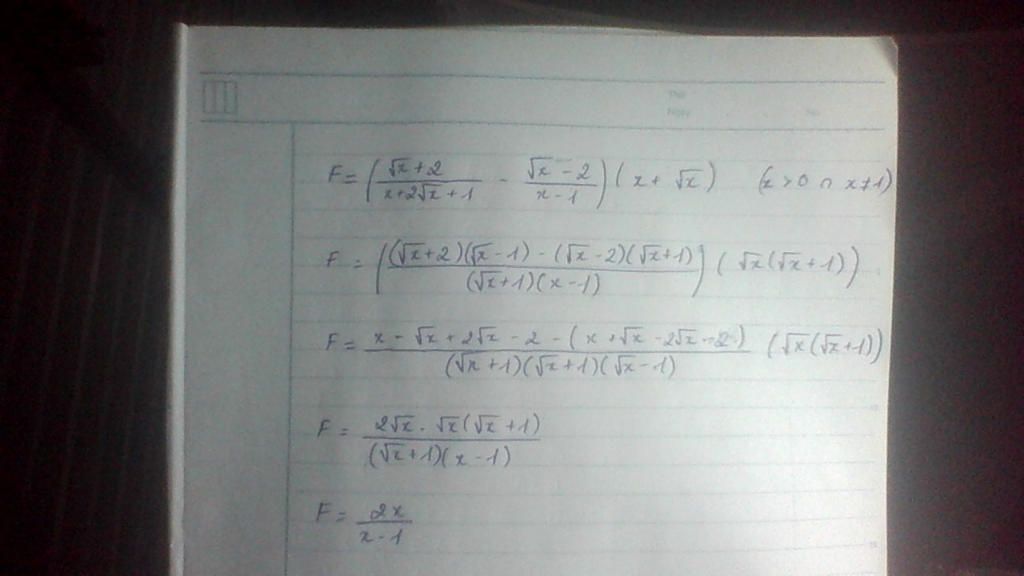 Thứ
Ngày No.
F = ( (√x + 2)/(x + 2√x + 1) - (√x - 2)/(x - 1) ) ( x + √x ) (x > 0 ∩ x ≠ 1)
F = ( ((√x + 2)(√x - 1) - (√x - 2)(√x + 1))/((√x + 1)(x - 1)) ) ( √x(√x + 1) )
F = (x - √x + 2√x - 2 - (x + √x - 2√x - 2))/((√x + 1)(√x + 1)(√x - 1)) (√x(√x + 1))
F = (2√x . √x(√x + 1))/((√x + 1)(x - 1))
F = 2x/(x - 1)